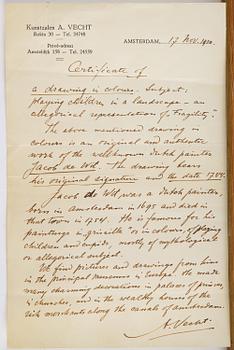 Kunstzalen A. VECHT
Rokin 30 — Tel. 34748
Privé-adres:
Amsteldijk 196 — Tel. 24539
AMSTERDAM, 17 Nov. 1930.
Certificate of
a drawing in colours. Subject:
playing children in a landscape – an
allegorical representation of "Fragility".
The above mentioned drawing
colours is an original and authentic
work of the wellknown dutch painter
Jacob de Wit. The drawing bears
his original signature and the date
Jacob de Wit was a dutch painter,
born in Amsterdam in 1695 and died in
that town in 1754. He is famous for his
paintings in "grisaille" or in colours, of playing
children and cupids, mostly of mythological
or allegorical subject.
We find pictures and drawings from him
in the principal museums in Europe. He made
many charming decorations in palaces of princes,
in churches, and in the wealthy houses of the
rich merchants along the canals of Amsterdam.
A. Vecht.